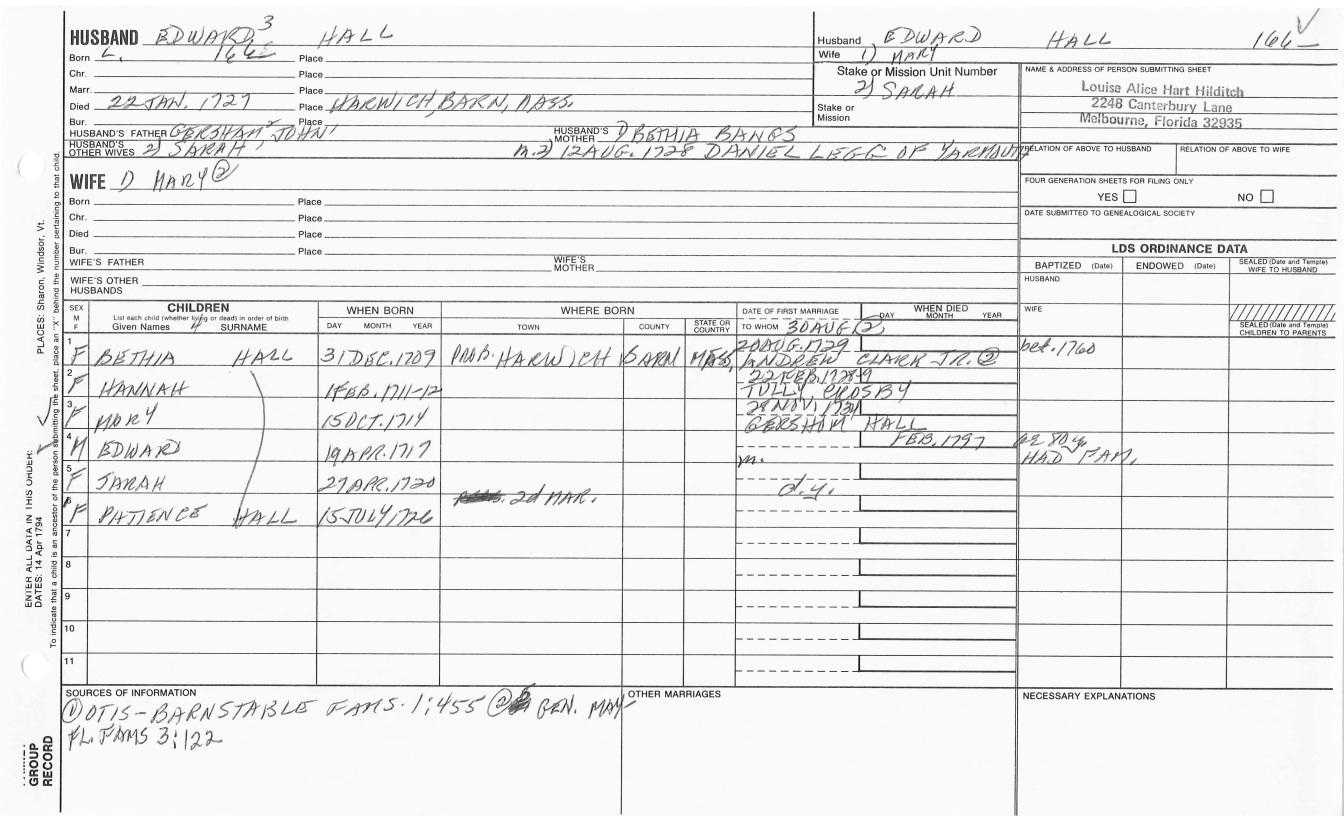 HUSBAND EDWARD 3 HALL
Born Place
Chr. Place
Marr. Place
Died 22 JAN. 1727 Place HARWICH, BARN, MASS.
Bur. Place
HUSBAND'S FATHER GERSHAM 2 JOHN 1 HUSBAND'S MOTHER 1) BETHIA BANGS
HUSBAND'S OTHER WIVES 2) SARAH m. 2) 12 AUG. 1728 DANIEL LEGG OF YARMOUTH
Husband EDWARD HALL 166_ ✓
Wife 1) MARY
Stake or Mission Unit Number
2) SARAH
Stake or Mission
NAME & ADDRESS OF PERSON SUBMITTING SHEET
Louise Alice Hart Hilditch
2248 Canterbury Lane
Melbourne, Florida 32935
RELATION OF ABOVE TO HUSBAND RELATION OF ABOVE TO WIFE
FOUR GENERATION SHEETS FOR FILING ONLY
YES NO
DATE SUBMITTED TO GENEALOGICAL SOCIETY
LDS ORDINANCE DATA
BAPTIZED (Date) ENDOWED (Date) SEALED (Date and Temple) WIFE TO HUSBAND
HUSBAND
WIFE
SEALED (Date and Temple) CHILDREN TO PARENTS
WIFE 1) MARY ②
Born Place
Chr. Place
Died Place
Bur. Place
WIFE'S FATHER WIFE'S MOTHER
WIFE'S OTHER HUSBANDS
SEX M F
CHILDREN
List each child (whether living or dead) in order of birth
Given Names SURNAME
WHEN BORN
DAY MONTH YEAR
WHERE BORN
TOWN COUNTY STATE OR COUNTRY
DATE OF FIRST MARRIAGE
TO WHOM 30 AUG ②
WHEN DIED
DAY MONTH YEAR
1 F BETHIA HALL 31 DEC. 1709 PROB. HARWICH BARN MASS. 20 AUG. 1729 ANDREW CLARK JR. ② bet. 1760
2 F HANNAH 1 FEB. 1711-12 22 FEB. 1728-9 TULLY CROSBY
3 F MARY 15 OCT. 1714 GERSHOM HALL
4 M EDWARD 19 APR. 1717 m. FEB. 1797 ae 80y HAD FAM.
5 F SARAH 27 APR. 1720 d.y.
2d MAR.
6 F PATIENCE HALL 15 JULY 1726
7
8
9
10
11
SOURCES OF INFORMATION
① OTIS-BARNSTABLE FAMS. 1:455 ② GEN. MAY-
FL. FAMS 3:122
OTHER MARRIAGES
NECESSARY EXPLANATIONS
ENTER ALL DATA IN THIS ORDER:
DATES: 14 Apr 1794 PLACES: Sharon, Windsor, Vt.
To indicate that a child is an ancestor of the person submitting the sheet, place an "X" behind the number pertaining to that child.
GROUP
RECORD